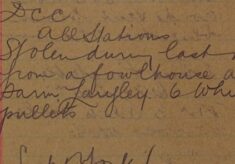 DCC
All Stations
Stolen during last
from a fowlhouse a
Farm Langley 6 Whi
pullets